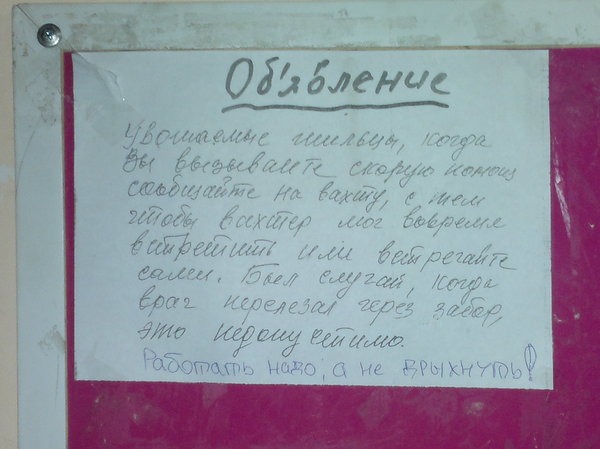 Об'явление
Уважаемые жильцы, когда
Вы вызываите скорую помощ
сообщайте на вахту, с тем
чтобы вахтер мог вовремя
встретить или встречайте
сами. Был случай, когда
врач перелезал через забор,
это недопустимо.
Работать надо, а не дрыхнуть!